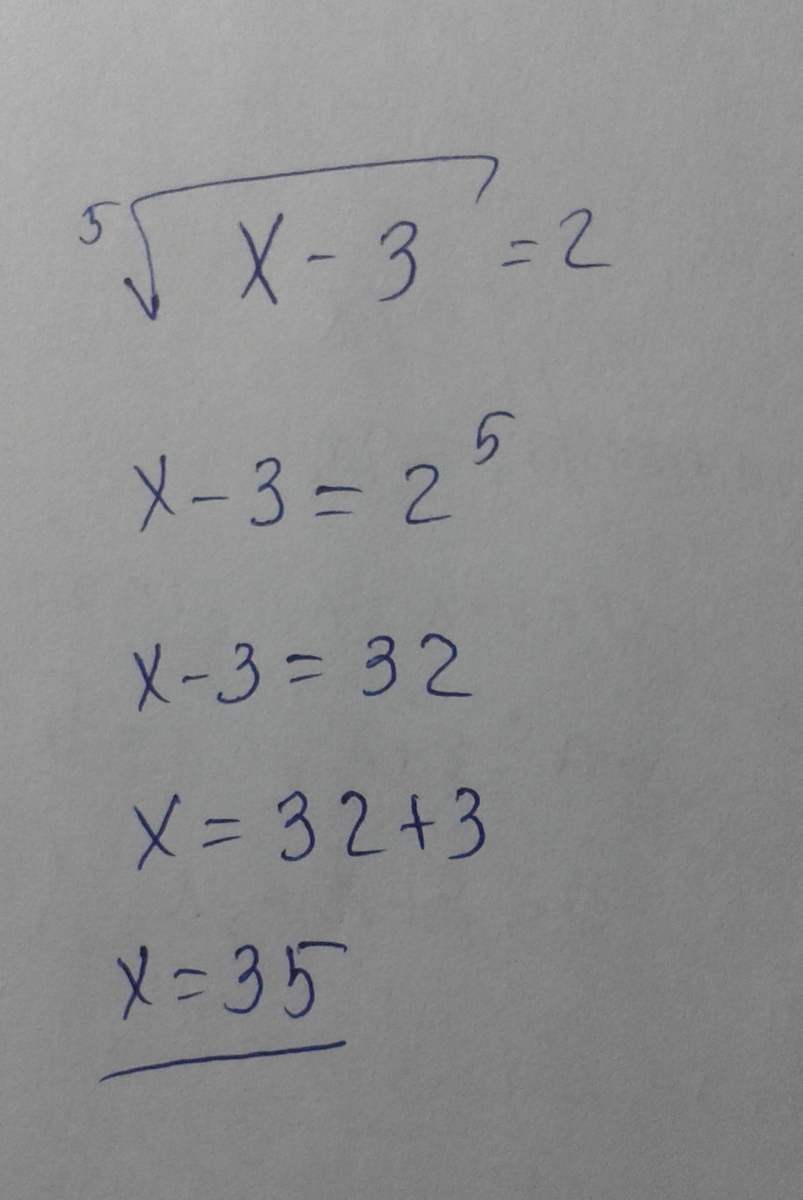 ⁵√(x-3) = 2
x-3 = 2⁵
x-3 = 32
x = 32+3
x = 35